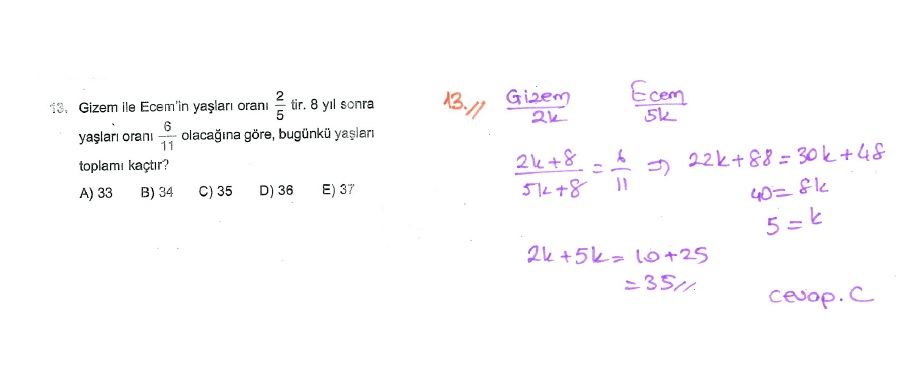 13. Gizem ile Ecem'in yaşları oranı 2/5 tir. 8 yıl sonra
yaşları oranı 6/11 olacağına göre, bugünkü yaşları
toplamı kaçtır?
A) 33 B) 34 C) 35 D) 36 E) 37
13.//
Gizem Ecem
2k 5k
(2k+8)/(5k+8) = 6/11 ⇒ 22k+88=30k+48
40=8k
5=k
2k+5k=10+25
=35//
cevap. C